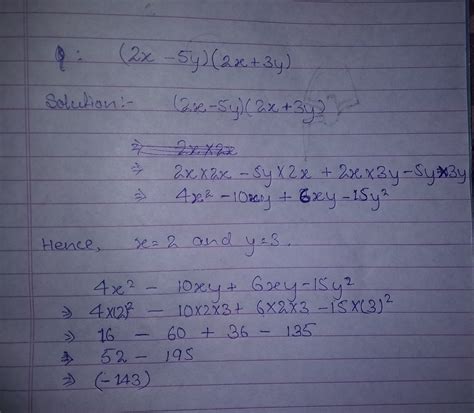 Q: (2x - 5y) (2x + 3y)
Solution:- (2x - 5y) (2x + 3y)
⇒ 2x × 2x
⇒ 2x × 2x - 5y × 2x + 2x × 3y - 5y × 3y
⇒ 4x² - 10xy + 6xy - 15y²
Hence, x = 2 and y = 3.
4x² - 10xy + 6xy - 15y²
⇒ 4×(2)² - 10×2×3 + 6×2×3 - 15×(3)²
⇒ 16 - 60 + 36 - 135
⇒ 52 - 195
⇒ (-143)